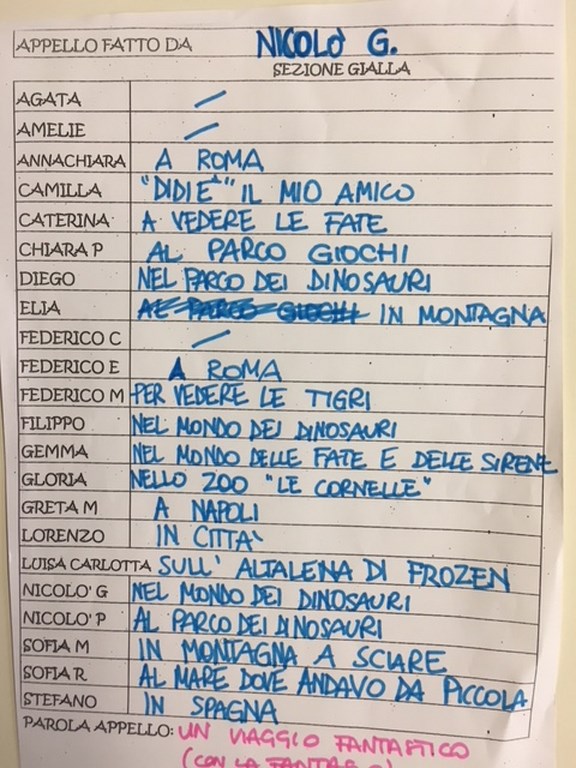 APPELLO FATTO DA NICOLO' G.
SEZIONE GIALLA
AGATA /
AMELIE /
ANNACHIARA A ROMA
CAMILLA "DIDIE^" IL MIO AMICO
CATERINA A VEDERE LE FATE
CHIARA P AL PARCO GIOCHI
DIEGO NEL PARCO DEI DINOSAURI
ELIA AL PARCO GIOCHI IN MONTAGNA
FEDERICO C /
FEDERICO E A ROMA
FEDERICO M PER VEDERE LE TIGRI
FILIPPO NEL MONDO DEI DINOSAURI
GEMMA NEL MONDO DELLE FATE E DELLE SIRENE
GLORIA NELLO ZOO "LE CORNELLE"
GRETA M A NAPOLI
LORENZO IN CITTA'
LUISA CARLOTTA SULL' ALTALENA DI FROZEN
NICOLO' G NEL MONDO DEI DINOSAURI
NICOLO' P AL PARCO DEI DINOSAURI
SOFIA M IN MONTAGNA A SCIARE
SOFIA R AL MARE DOVE ANDAVO DA PICCOLA
STEFANO IN SPAGNA
PAROLA APPELLO: UN VIAGGIO FANTASTICO
(CON LA